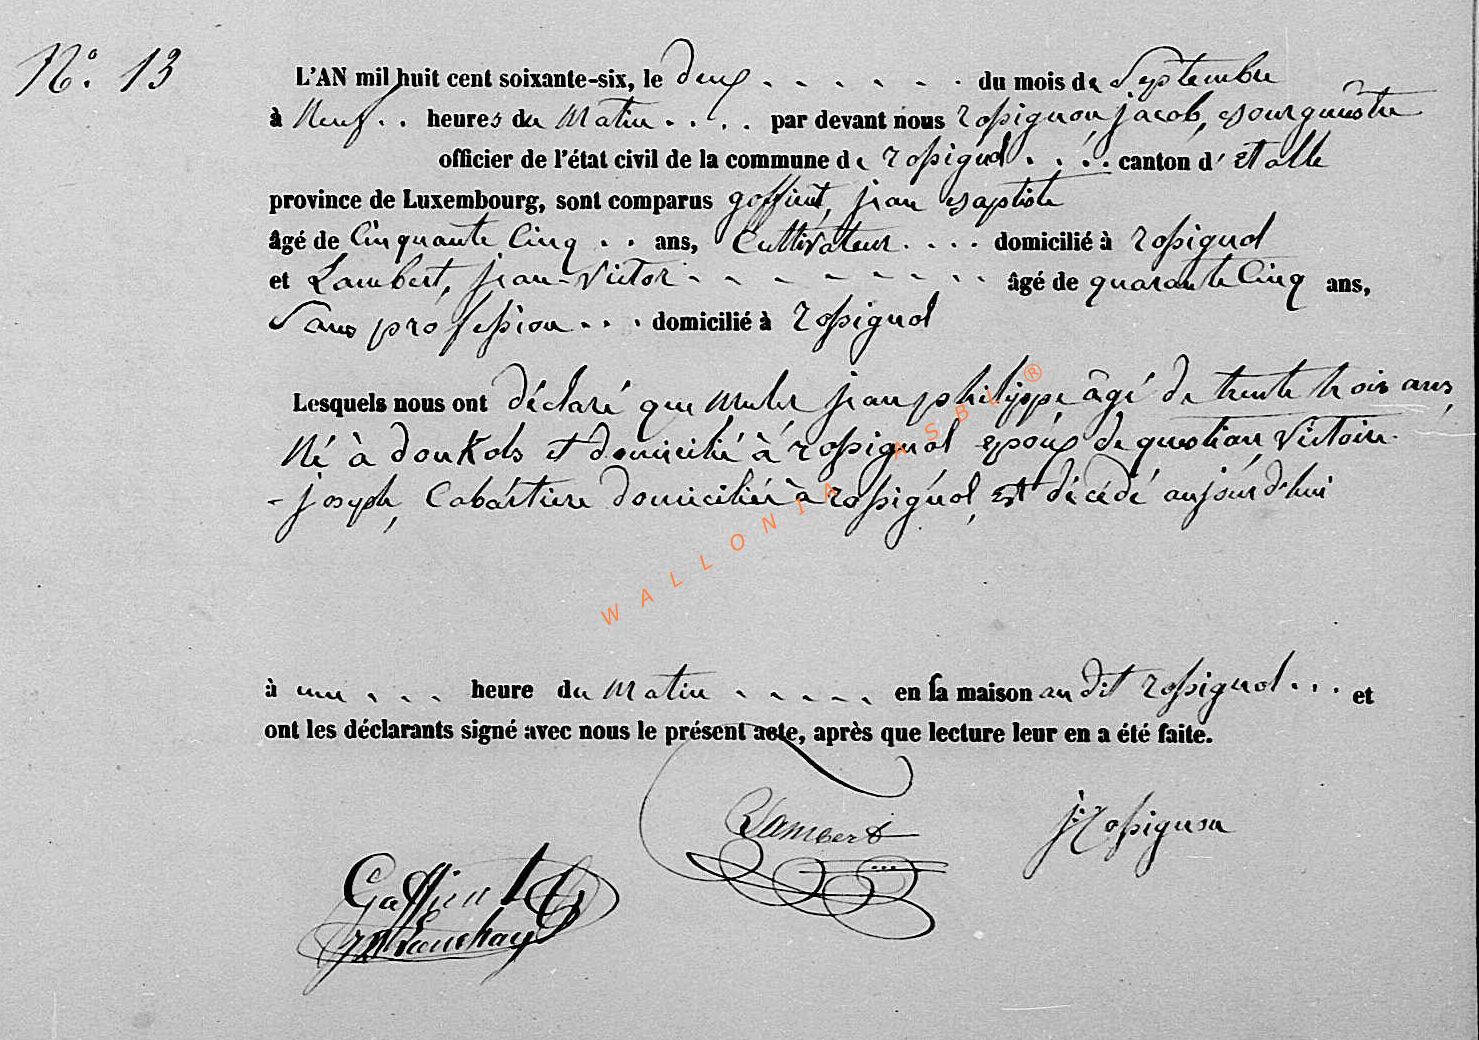 N.° 13
L'AN mil huit cent soixante-six, le deux . . . . . . du mois de Septembre
à Neuf . . heures du Matin . . . . par devant nous rossignon, jacob, Bourguêstre
officier de l'état civil de la commune de rossignol . . . . canton d' Etalle
province de Luxembourg, sont comparus goffinet, jean Baptiste
âgé de Cinquante Cinq . . ans, Cultivateur . . . . domicilié à rossignol
et Lambert, jean-Victor - - - - - - - - - âgé de quarante Cinq ans,
Sans profession . . . domicilié à rossignol
Lesquels nous ont déclaré que jean philippe âgé de trente trois ans,
Né à donKols et domicilié à rossignol époux de Victoire
-joseph, Cabartière domiciliée à rossignol, Est décédé aujourd'hui
à une . . . heure du Matin - - - - - en sa maison au dit rossignol . . . et
ont les déclarants signé avec nous le présent acte, après que lecture leur en a été faite.
Lambert
j. rossignon
Goffinet
WALLONIA ASBL ®